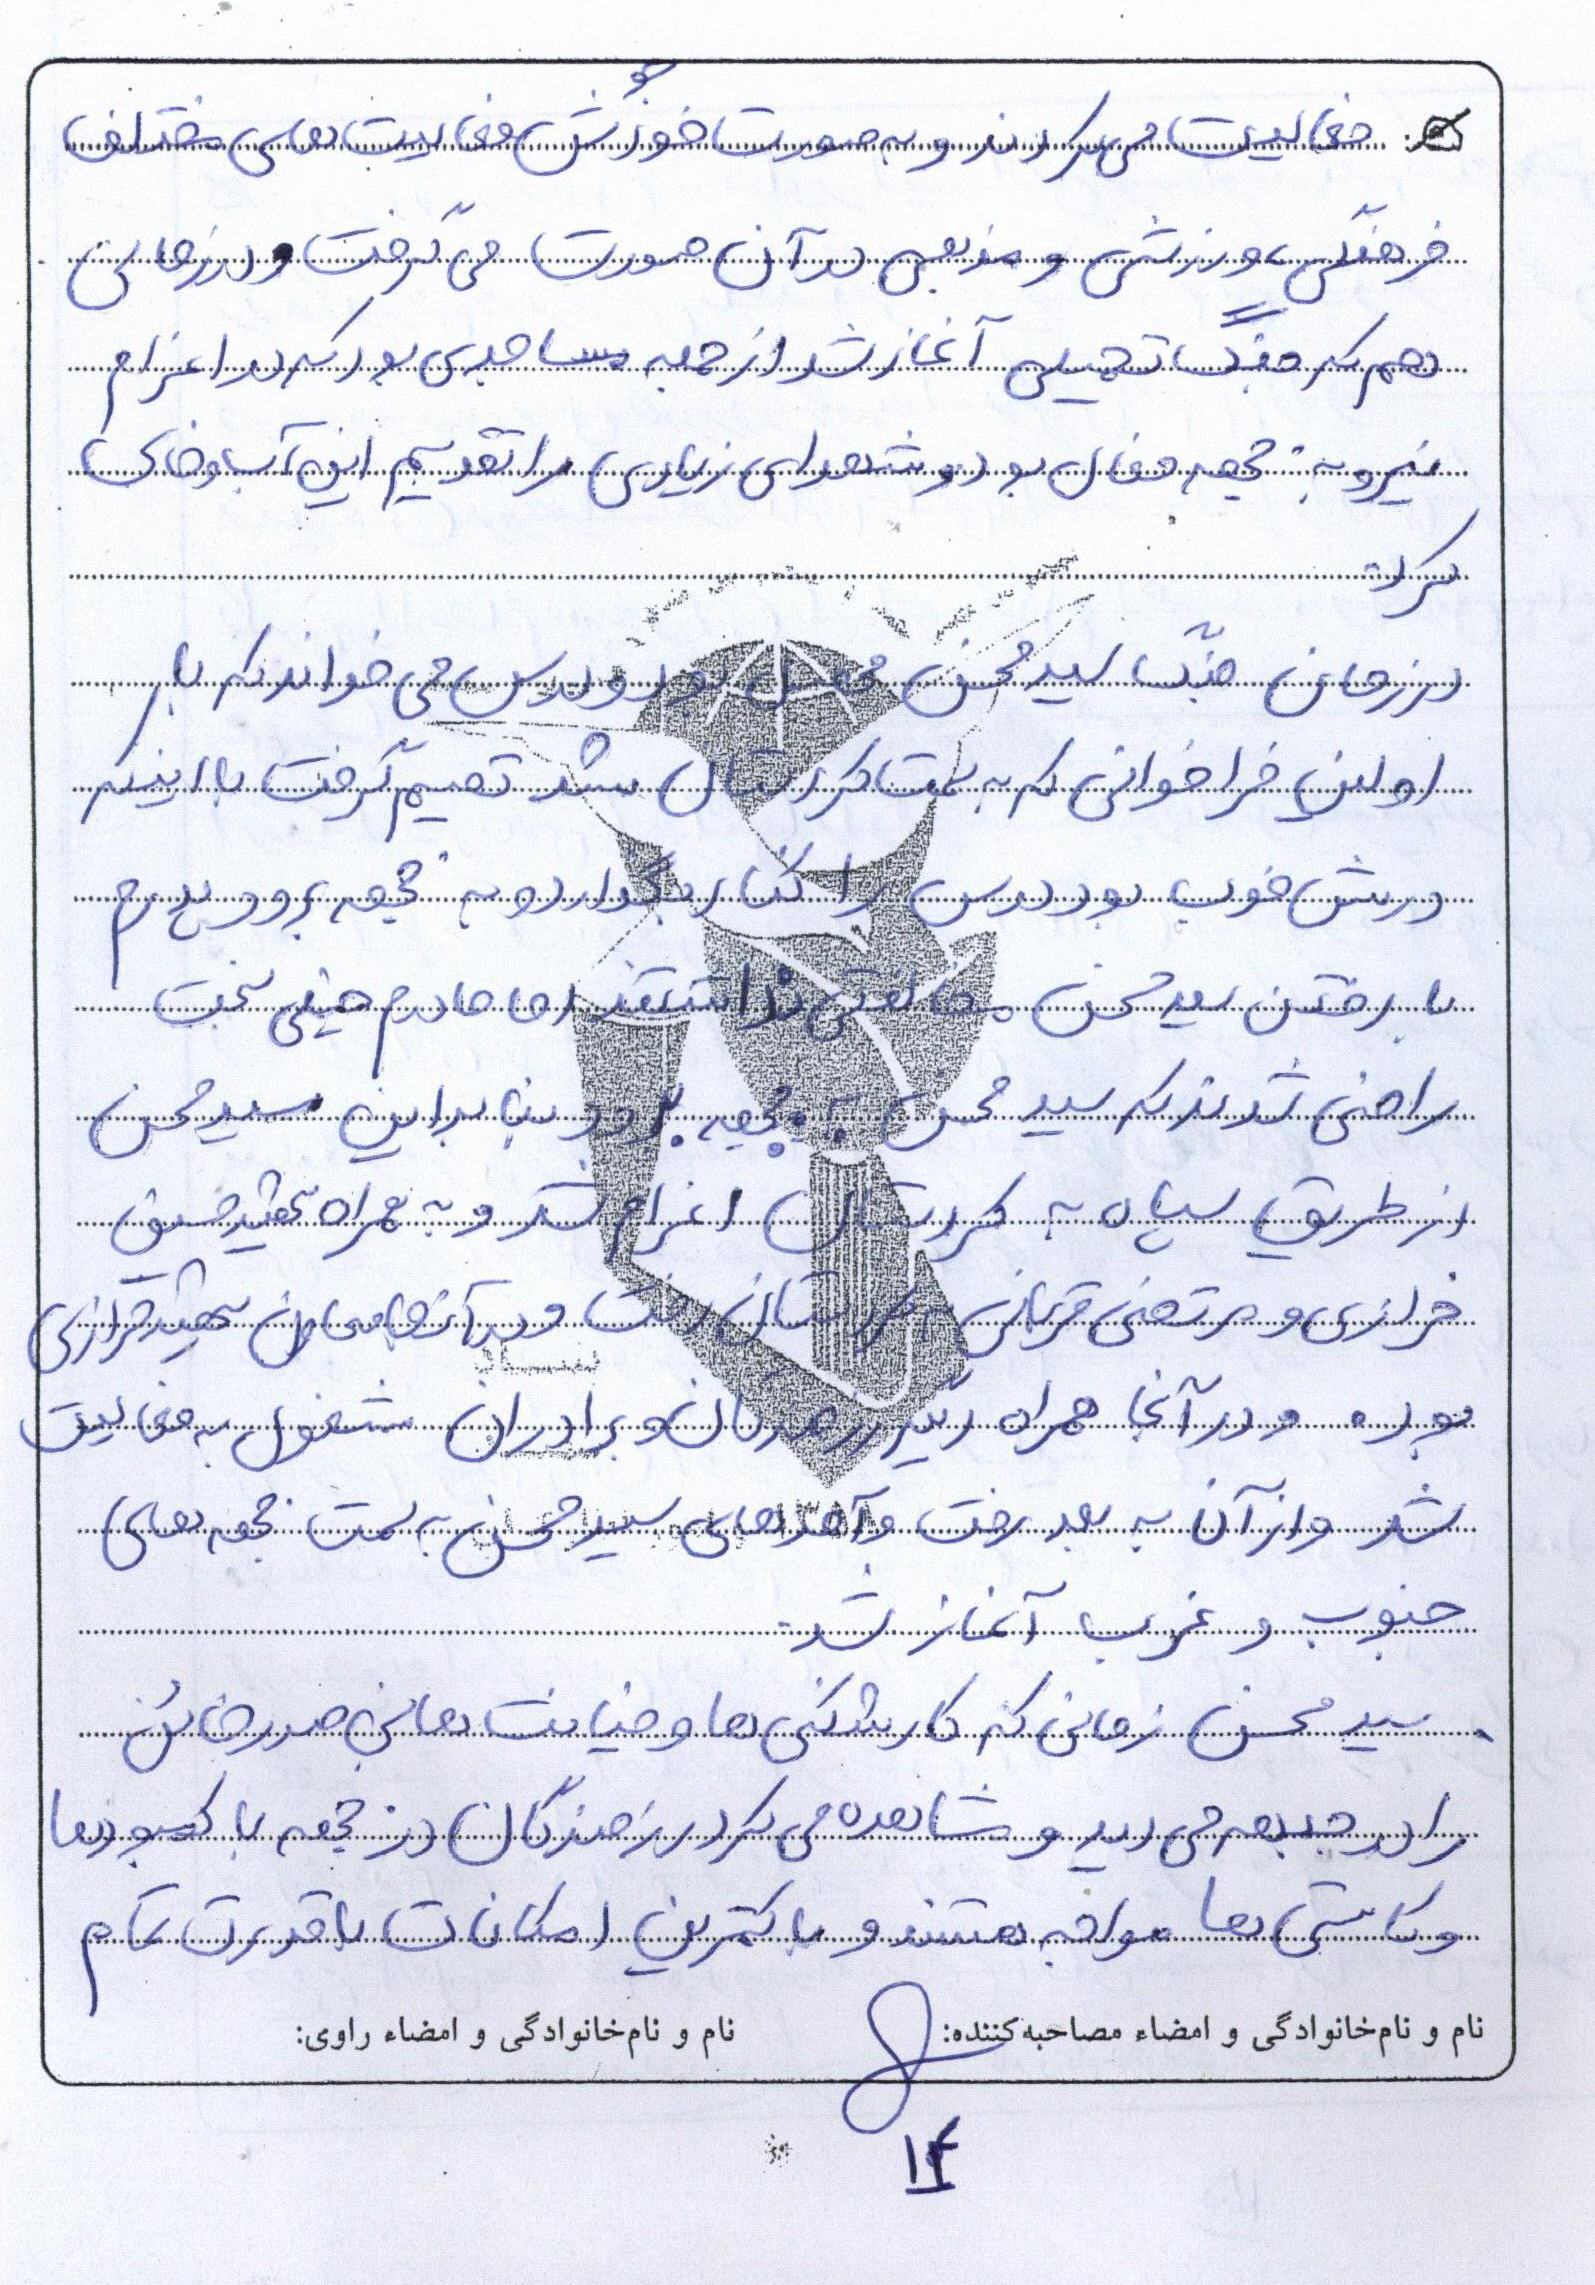 فعالیت می کردند و به صورت خودجوش فعالیت های مختلف
فرهنگی، ورزشی و مذهبی در آن صورت می گرفت و در زمانی
هم که جنگ تحمیلی آغاز شد از جمله مساجدی بود که در اعزام
نیرو به جبهه فعال بود و شهدای زیادی را تقدیم این آب و خاک
کرد.
در زمان جنگ سید محسن محصل بود و درس می خواند که با
اولین فراخوانی که به سمت کردستان شد تصمیم گرفت با اینکه
درسش خوب بود درس را کنار بگذارد و به جبهه برود پدرم
با رفتن سید محسن مخالفتی نداشتند اما مادرم خیلی سخت
راضی شدند که سید محسن به جبهه برود بنابراین سید محسن
از طریق سپاه به کردستان اعزام شد و به همراه شهید حسین
خرازی و مرتضی قربانی به کردستان رفت و در آنجا معاون شهید خرازی
بوده و در آنجا همراه دیگر رزمندگان و برادران مشغول به فعالیت
شد و از آن به بعد رفت و آمدهای سید محسن به سمت جبهه های
جنوب و غرب آغاز شد.
سید محسن زمانی که کارشکنی ها و خیانت های بنی صدر خائن
را در جبهه می دید و مشاهده می کرد رزمندگان در جبهه با کمبودها
و کاستی ها مواجه هستند و با کمترین امکانات با قدرت تمام
نام و نام‌خانوادگی و امضاء مصاحبه‌کننده: نام و نام‌خانوادگی و امضاء راوی:
۱۴